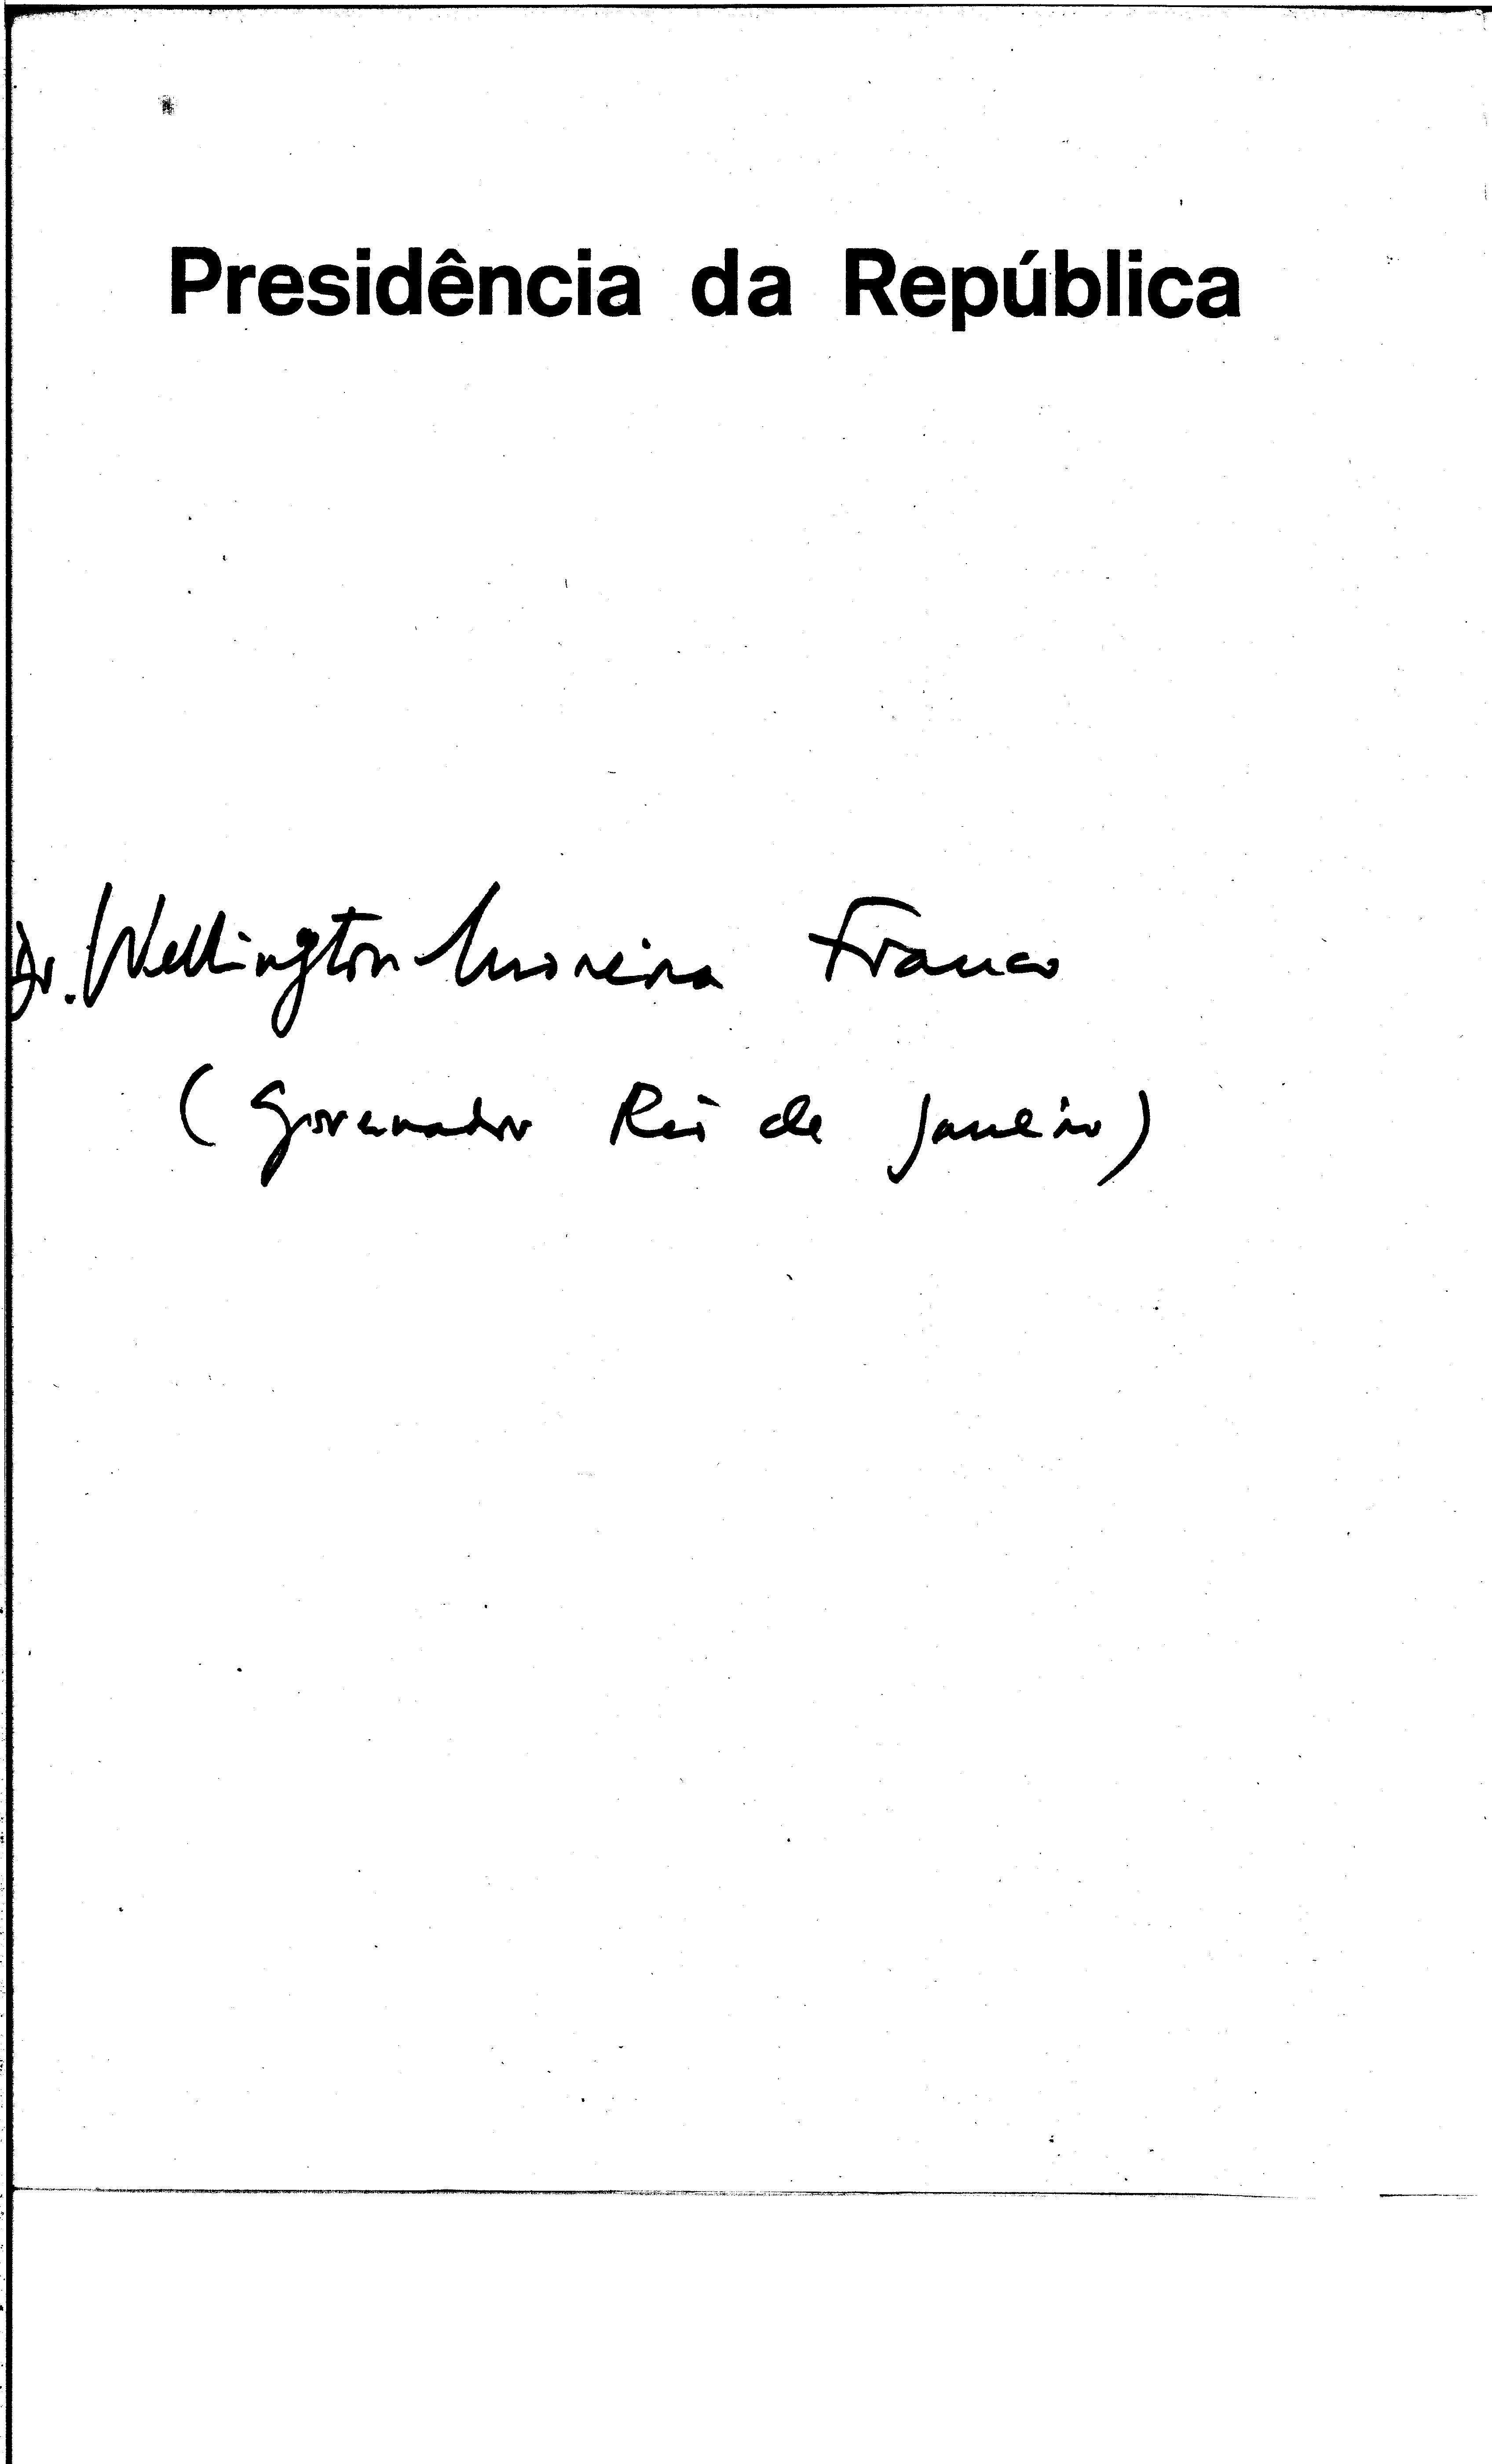 Presidência da República
Dr. Wellington Moreira Franco
(Governador Rio de Janeiro)